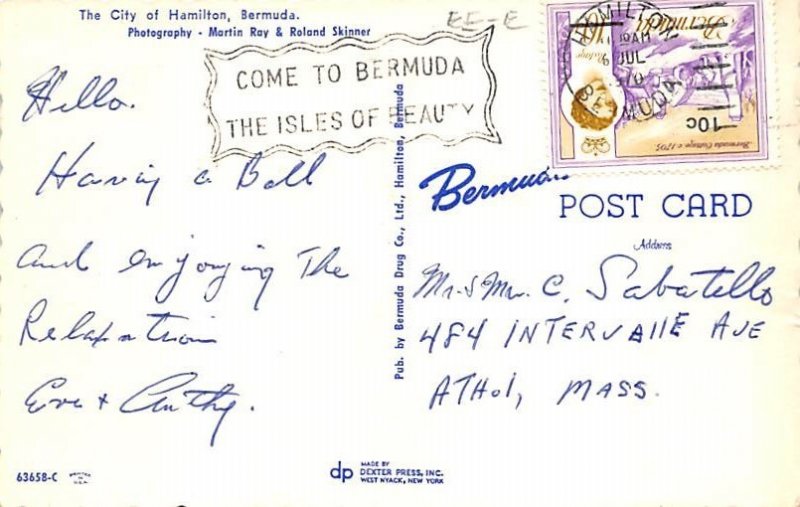 The City of Hamilton, Bermuda.
Photography - Martin Ray & Roland Skinner
EE-E
COME TO BERMUDA
THE ISLES OF BEAUTY
HAMILTON
AM
9 JUL
70
BERMUDA
Bermuda
10c
Bermuda Cottage c.1705
Hello.
Having a Ball
and enjoying The
Relaxation
Eve + Anthy.
Pub. by Bermuda Drug Co., Ltd., Hamilton, Bermuda
Bermuda
POST CARD
Address
Mr. & Mrs. C. Sabatello
484 INTERVAllE AVE
AThol, MASS.
63658-C
dp
MADE BY
DEXTER PRESS, INC.
WEST NYACK, NEW YORK